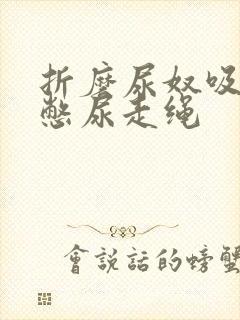 折磨尿奴吸
憋尿走绳
會說話的螃蟹